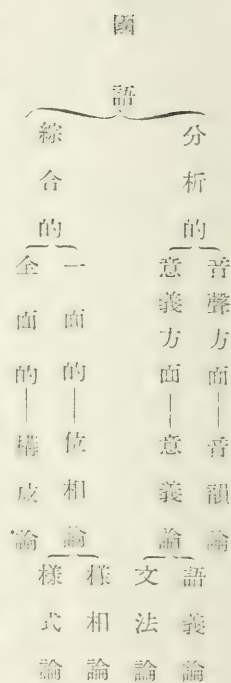 國語
分析的
音聲方面—音韻論
意義方面—意義論
語義論
文法論
綜合的
一面的—位相論
樣相論
樣式論
全面的—構成論